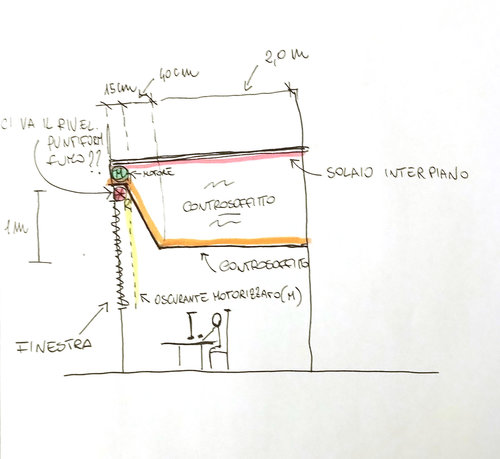 2,0 m
40 cm
15 cm
CI VA IL RIVEL.
PUNTIFORM
FUMO??
M
MOTORE
SOLAIO INTERPIANO
CONTROSOFFITTO
1 m
CONTROSOFFITTO
OSCURANTE MOTORIZZATO (M)
FINESTRA